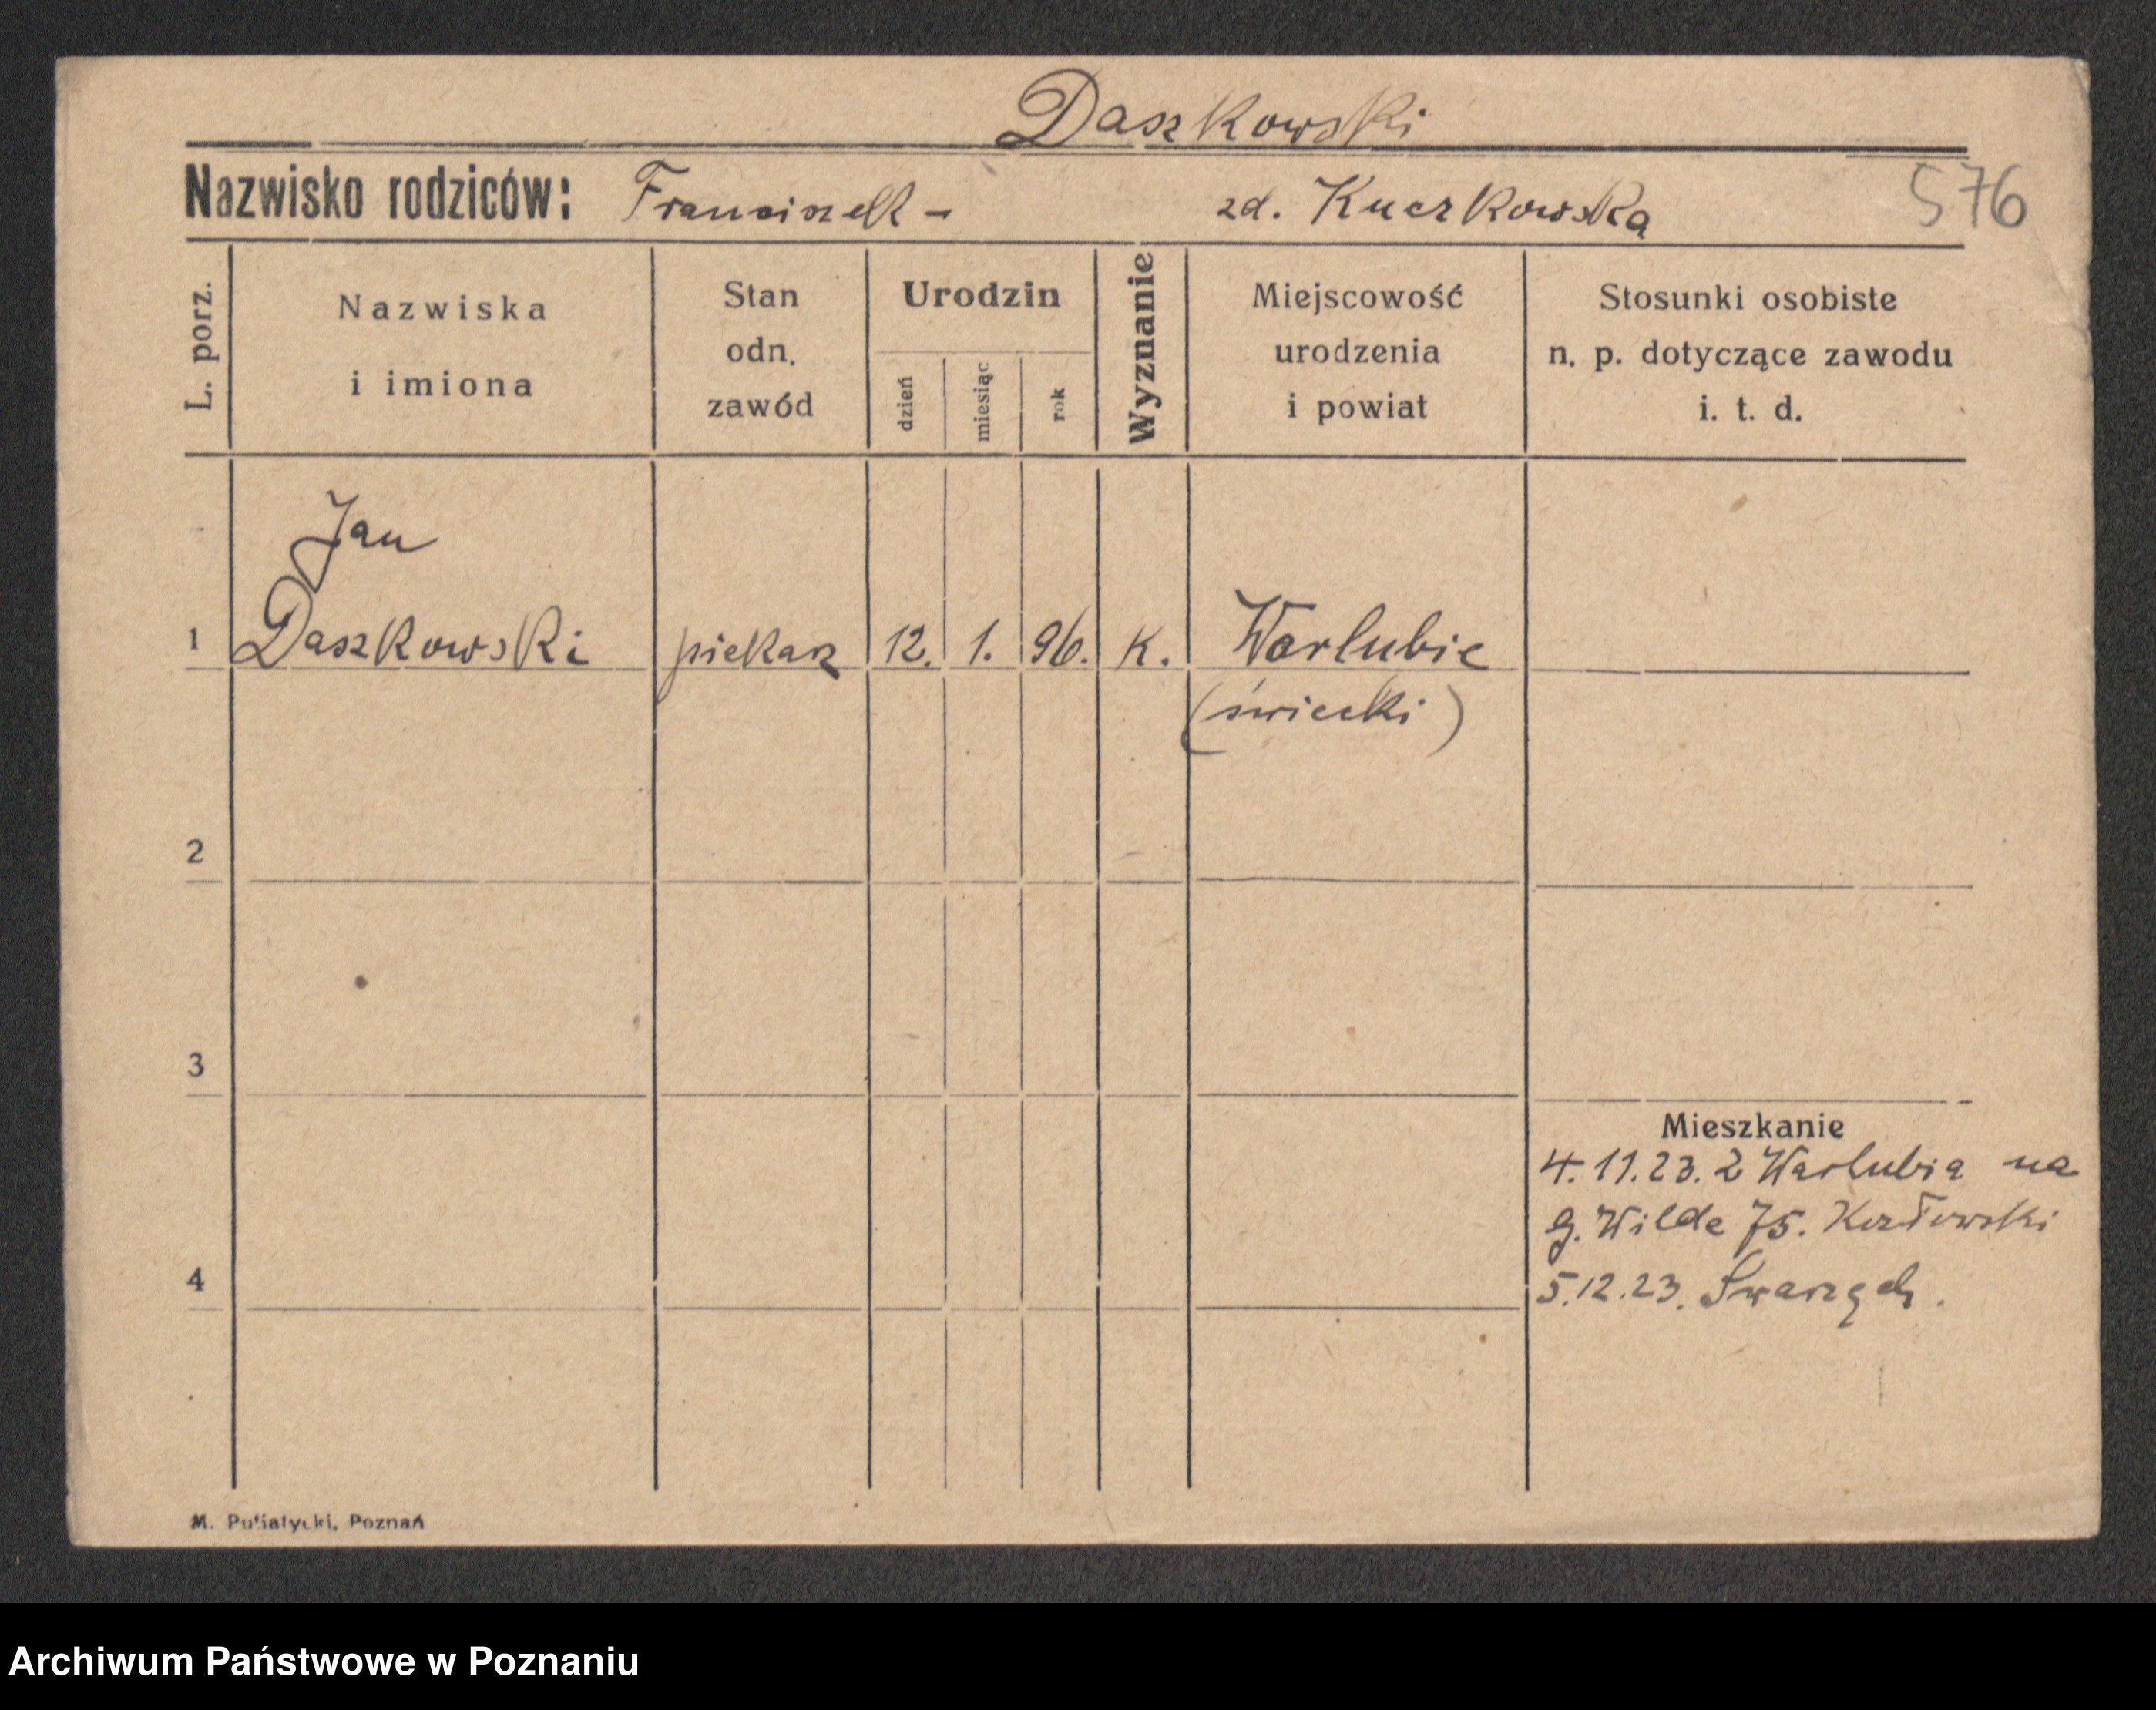 Daszkowski
Nazwisko rodziców: Franciszek - zd. Kuczkowską 576
L. porz.
Nazwiska
i imiona
Stan
odn.
zawód
Urodzin
dzień
miesiąc
rok
Wyznanie
Miejscowość
urodzenia
i powiat
Stosunki osobiste
n. p. dotyczące zawodu
i. t. d.
Jan
1 Daszkowski piekarz 12. 1. 96. K. Warlubie
(świecki)
2
3
Mieszkanie
4.11.23. z Warlubia na
g. Wilde 75. Kozłowski
4
5.12.23. Swarzędz.
M. Putiatycki, Poznań
Archiwum Państwowe w Poznaniu